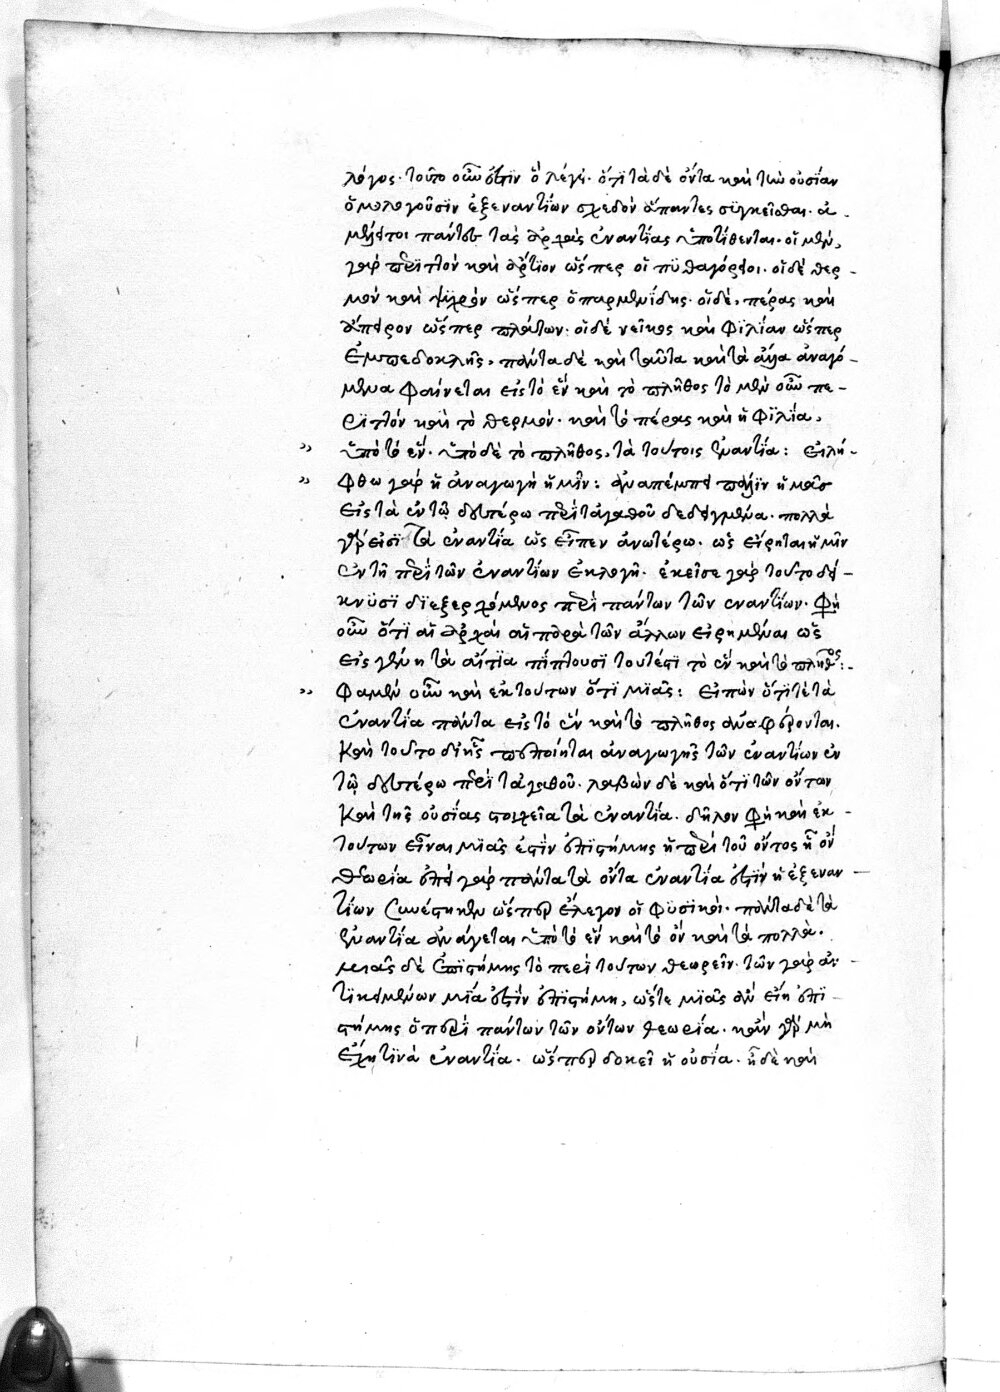 λόγος. τοῦτο οὖν ἐστὶν ὃ λέγει. ὅτι τὰ δὲ ὄντα καὶ τὴν οὐσίαν
ὁμολογοῦσιν ἐξ ἐναντίων σχεδὸν ἅπαντες συγκεῖσθαι. ἀ-
μέλει τοι πάντες τὰς ἀρχὰς ἐναντίας ὑποτίθενται. οἱ μὲν,
γὰρ περιττὸν καὶ ἄρτιον ὥσπερ οἱ πυθαγόρειοι. οἱ δὲ θερ-
μὸν καὶ ψυχρὸν ὥσπερ ὁ παρμενίδης. οἱ δὲ, πέρας καὶ
ἄπειρον ὥσπερ πλάτων: οἱ δὲ νεῖκος καὶ φιλίαν ὥσπερ
ἐμπεδοκλῆς, πάντα δὲ καὶ ταῦτα καὶ τὰ ἄλλα ἀναγό-
μενα φαίνεται εἰς τὸ ἓν καὶ τὸ πλῆθος τὸ μὲν οὖν πε-
ριττὸν καὶ τὸ θερμόν. καὶ τὸ πέρας καὶ ἡ φιλία,
ὑπὸ τὸ ἕν. ὑπὸ δὲ τὸ πλῆθος, τὰ τούτοις ἐναντία: εἰλή-
φθω γὰρ ἡ ἀναγωγὴ ἡμῖν: ἀναπέμπει πάλιν ἡμᾶς
εἰς τὰ ἐν τῷ δευτέρῳ περὶ τἀγαθοῦ δεδειγμένα. πολλὰ
γάρ εἰσι τὰ ἐναντία ὡς εἶπεν ἀνωτέρω. ὡς εἴρηται ἡμῖν
ἐν τῇ περὶ τῶν ἐναντίων ἐκλογῇ. ἐκεῖσε γὰρ τοῦτο δεί-
κνυσι διεξερχόμενος περὶ πάντων τῶν ἐναντίων. φησὶ
οὖν ὅτι αἱ ἀρχαὶ αἱ παρὰ τῶν ἄλλων εἰρημέναι ὡς
εἰς γένη τὰ αἴτια πίπτουσι τουτέστι τὸ ἓν καὶ τὸ πλῆθος:-
φαμὲν οὖν καὶ ἐκ τούτων ὅτι μιᾶς: εἰπὼν ὅτι τε τὰ
ἐναντία πάντα εἰς τὸ ἓν καὶ τὸ πλῆθος ἀναφέρονται.
καὶ τοῦτο δείξας πεποίηται ἀναγωγῆς τῶν ἐναντίων ἐν
τῷ δευτέρῳ περὶ τἀγαθοῦ. λαβὼν δὲ καὶ ὅτι τῶν ὄντων
καὶ τῆς οὐσίας στοιχεῖα τὰ ἐναντία. δῆλον φησὶ καὶ ἐκ
τούτων εἶναι μιᾶς ἐστὶν ἐπιστήμης ἡ περὶ τοῦ ὄντος ᾗ ὂν
θεωρία ἐπεὶ γὰρ πάντα τὰ ὄντα ἐναντία ἐστὶν ἢ ἐξ ἐναν-
τίων συνέστηκεν ὥσπερ ἔλεγον οἱ φυσικοί. πάντα δὲ τὰ
ἐναντία ἀνάγεται ὑπὸ τὸ ἓν καὶ τὸ ὂν καὶ τὰ πολλά.
μιᾶς δὲ ἐπιστήμης τὸ περὶ τούτων θεωρεῖν. τῶν γὰρ ἀν-
τικειμένων μία ἐστὶν ἐπιστήμη, ὥστε μιᾶς ἂν εἴη ἐπι-
στήμης ἡ περὶ πάντων τῶν ὄντων θεωρία. κἂν γὰρ μὴ
ἔχῃ τινὰ ἐναντία. ὥσπερ δοκεῖ ἡ οὐσία. ἤδε καὶ